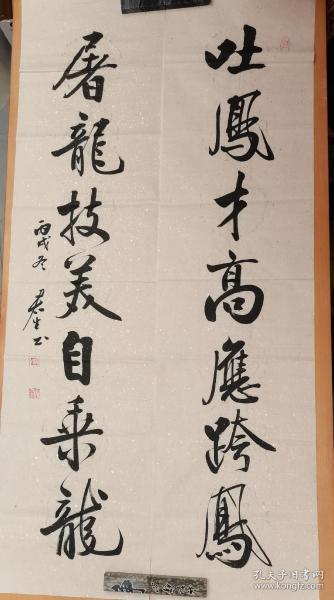 吐鳳才高應跨鳳
屠龍技美自乘龍
丙戌冬 君生书
孔夫子旧书网